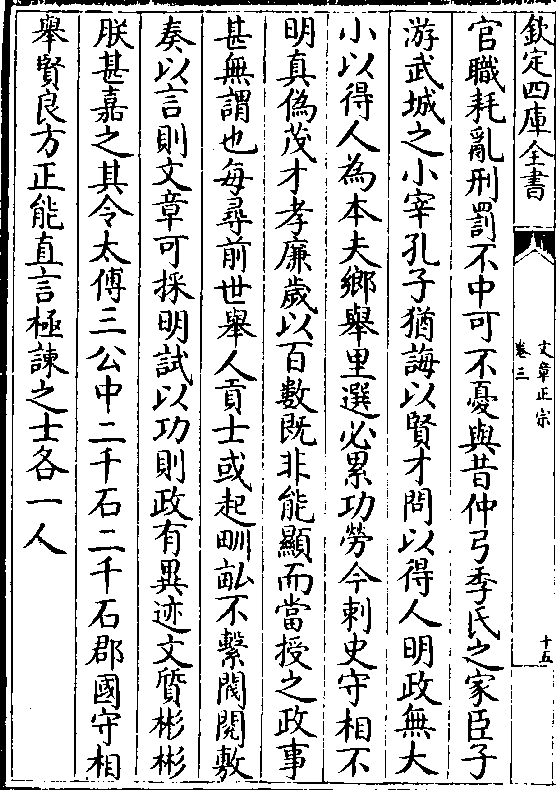 欽定四庫全書
文章正宗
卷三
十五
官職耗亂刑罰不中可不憂與昔仲弓季氏之家臣子
游武城之小宰孔子猶誨以賢才問以得人明政無大
小以得人為本夫鄉舉里選必累功勞今刺史守相不
明真偽茂才孝廉歲以百數既非能顯而當授之政事
甚無謂也每尋前世舉人貢士或起甽畝不繫閥閱敷
奏以言則文章可採明試以功則政有異迹文質彬彬
朕甚嘉之其令太傅三公中二千石二千石郡國守相
舉賢良方正能直言極諫之士各一人